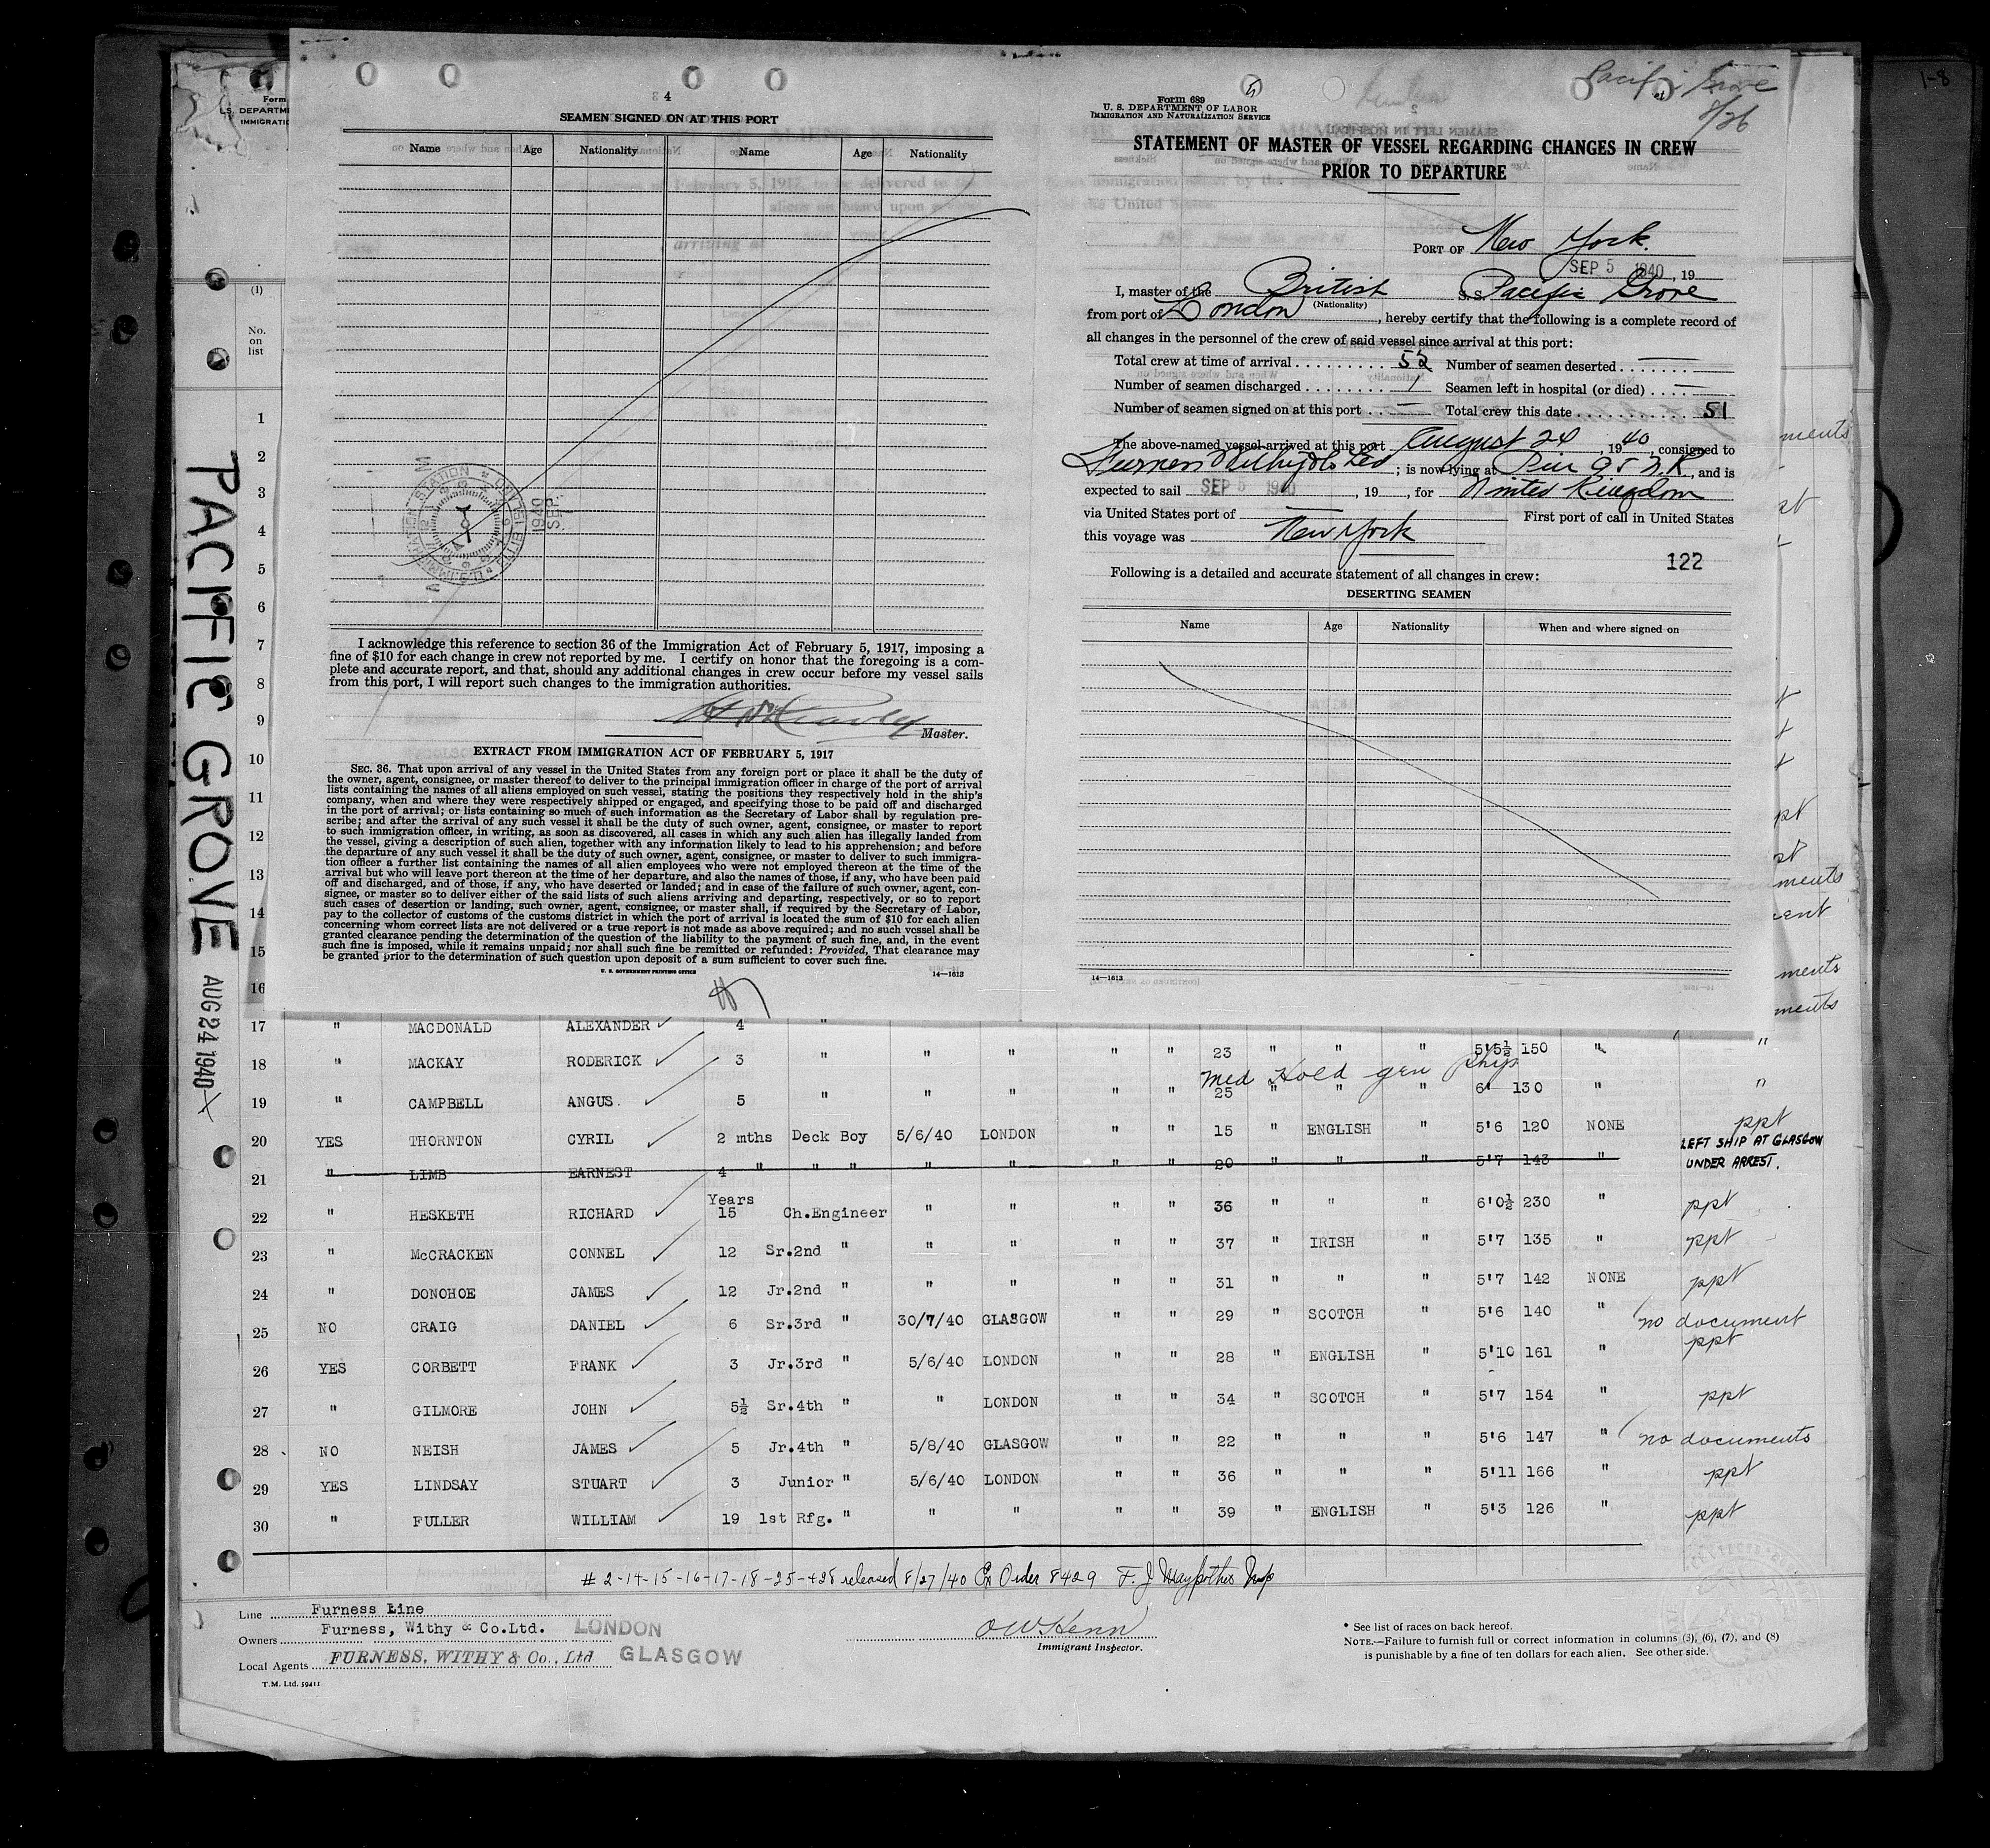 Pacific Grove
8/26
1-8
4
SEAMEN SIGNED ON AT THIS PORT
Name Age Nationality Name Age Nationality
I acknowledge this reference to section 36 of the Immigration Act of February 5, 1917, imposing a
fine of $10 for each change in crew not reported by me. I certify on honor that the foregoing is a com-
plete and accurate report, and that, should any additional changes in crew occur before my vessel sails
from this port, I will report such changes to the immigration authorities.
Master.
EXTRACT FROM IMMIGRATION ACT OF FEBRUARY 5, 1917
SEC. 36. That upon arrival of any vessel in the United States from any foreign port or place it shall be the duty of
the owner, agent, consignee, or master thereof to deliver to the principal immigration officer in charge of the port of arrival
lists containing the names of all aliens employed on such vessel, stating the positions they respectively hold in the ship's
company, when and where they were respectively shipped or engaged, and specifying those to be paid off and discharged
in the port of arrival; or lists containing so much of such information as the Secretary of Labor shall by regulation pre-
scribe; and after the arrival of any such vessel it shall be the duty of such owner, agent, consignee, or master to report
to such immigration officer, in writing, as soon as discovered, all cases in which any such alien has illegally landed from
the vessel, giving a description of such alien, together with any information likely to lead to his apprehension; and before
the departure of any such vessel it shall be the duty of such owner, agent, consignee, or master to deliver to such immigra-
tion officer a further list containing the names of all alien employees who were not employed thereon at the time of the
arrival but who will leave port thereon at the time of her departure, and also the names of those, if any, who have been paid
off and discharged, and of those, if any, who have deserted or landed; and in case of the failure of such owner, agent, con-
signee, or master so to deliver either of the said lists of such aliens arriving and departing, respectively, or so to report
such cases of desertion or landing, such owner, agent, consignee, or master shall, if required by the Secretary of Labor,
pay to the collector of customs of the customs district in which the port of arrival is located the sum of $10 for each alien
concerning whom correct lists are not delivered or a true report is not made as above required; and no such vessel shall be
granted clearance pending the determination of the question of the liability to the payment of such fine, and, in the event
such fine is imposed, while it remains unpaid; nor shall such fine be remitted or refunded: Provided, That clearance may
be granted prior to the determination of such question upon deposit of a sum sufficient to cover such fine.
U. S. GOVERNMENT PRINTING OFFICE 14—1613
Form 689
U. S. DEPARTMENT OF LABOR
IMMIGRATION AND NATURALIZATION SERVICE
STATEMENT OF MASTER OF VESSEL REGARDING CHANGES IN CREW
PRIOR TO DEPARTURE
PORT OF New York.
SEP 5 1940, 19
I, master of the British S.S. Pacific Grove
(Nationality)
from port of London, hereby certify that the following is a complete record of
all changes in the personnel of the crew of said vessel since arrival at this port:
Total crew at time of arrival 52 Number of seamen deserted —
Number of seamen discharged 1 Seamen left in hospital (or died) —
Number of seamen signed on at this port — Total crew this date 51
The above-named vessel arrived at this port August 24, 1940, consigned to
Furness Withy & Co Ltd; is now lying at Pier 95 N.R., and is
expected to sail SEP 5 1940, 19, for United Kingdom
via United States port of — First port of call in United States
this voyage was New York
122
Following is a detailed and accurate statement of all changes in crew:
DESERTING SEAMEN
Name Age Nationality When and where signed on
14—1613
PACIFIC GROVE AUG 24 1940
Form
U.S. DEPARTM
IMMIGRATIO
(1)
No.
on
list
1
2
3
4
5
6
7
8
9
10
11
12
13
14
15
16
17 " MACDONALD ALEXANDER 4 "
18 " MACKAY RODERICK 3 " " " " " 23 " " " 5'5½ 150 " "
Med Hold gen phys
19 " CAMPBELL ANGUS. 5 " " " " " 25 " " " 6' 130 " "
20 YES THORNTON CYRIL 2 mths Deck Boy 5/6/40 LONDON " " 15 " ENGLISH " 5'6 120 NONE ppt
LEFT SHIP AT GLASGOW
UNDER ARREST.
21 " LIMB EARNEST 4 " " " " " " " 20 " " " 5'7 143 "
22 " HESKETH RICHARD Years 15 Ch.Engineer " " " " 36 " " " 6'0½ 230 " ppt
23 " McCRACKEN CONNEL 12 Sr.2nd " " " " " 37 " IRISH " 5'7 135 " ppt
24 " DONOHOE JAMES 12 Jr.2nd " " " " " 31 " " " 5'7 142 NONE ppt
25 NO CRAIG DANIEL 6 Sr.3rd " 30/7/40 GLASGOW " " 29 " SCOTCH " 5'6 140 " no document
26 YES CORBETT FRANK 3 Jr.3rd " 5/6/40 LONDON " " 28 " ENGLISH " 5'10 161 " ppt
27 " GILMORE JOHN 5½ Sr.4th " " LONDON " " 34 " SCOTCH " 5'7 154 " ppt
28 NO NEISH JAMES 5 Jr.4th " 5/8/40 GLASGOW " " 22 " " " 5'6 147 " no documents
29 YES LINDSAY STUART 3 Junior " 5/6/40 LONDON " " 36 " " " 5'11 166 " ppt
30 " FULLER WILLIAM 19 1st Rfg. " " " " " 39 " ENGLISH " 5'3 126 " ppt
# 2-14-15-16-17-18-25-+28 released 8/27/40 Ex Order 8429 F. J. Insp
Line Furness Line
Owners Furness, Withy & Co.Ltd. LONDON
Local Agents FURNESS, WITHY & Co., Ltd GLASGOW
T.M. Ltd. 59411
Immigrant Inspector.
* See list of races on back hereof.
NOTE.—Failure to furnish full or correct information in columns (3), (6), (7), and (8)
is punishable by a fine of ten dollars for each alien. See other side.